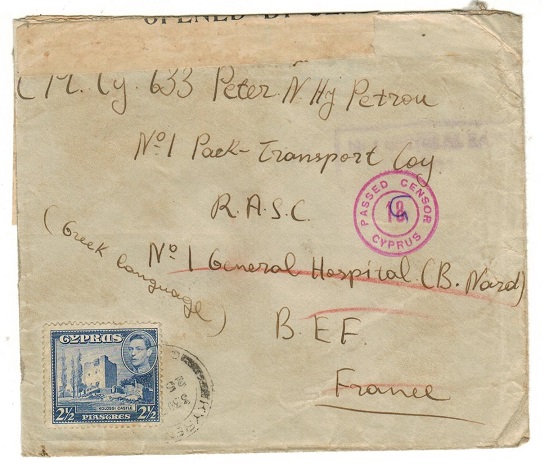 OPENED BY
C M. Cy. 633 Peter N Hj Petrou
No 1 Pack-Transport Coy.
R.A.S.C.
No 1 General Hospital (B. Nard)
(Greek language)
B.E.F.
France
PASSED CENSOR
18
CYPRUS
CYPRUS
KOLOSSI CASTLE
2½ PIASTRES 2½